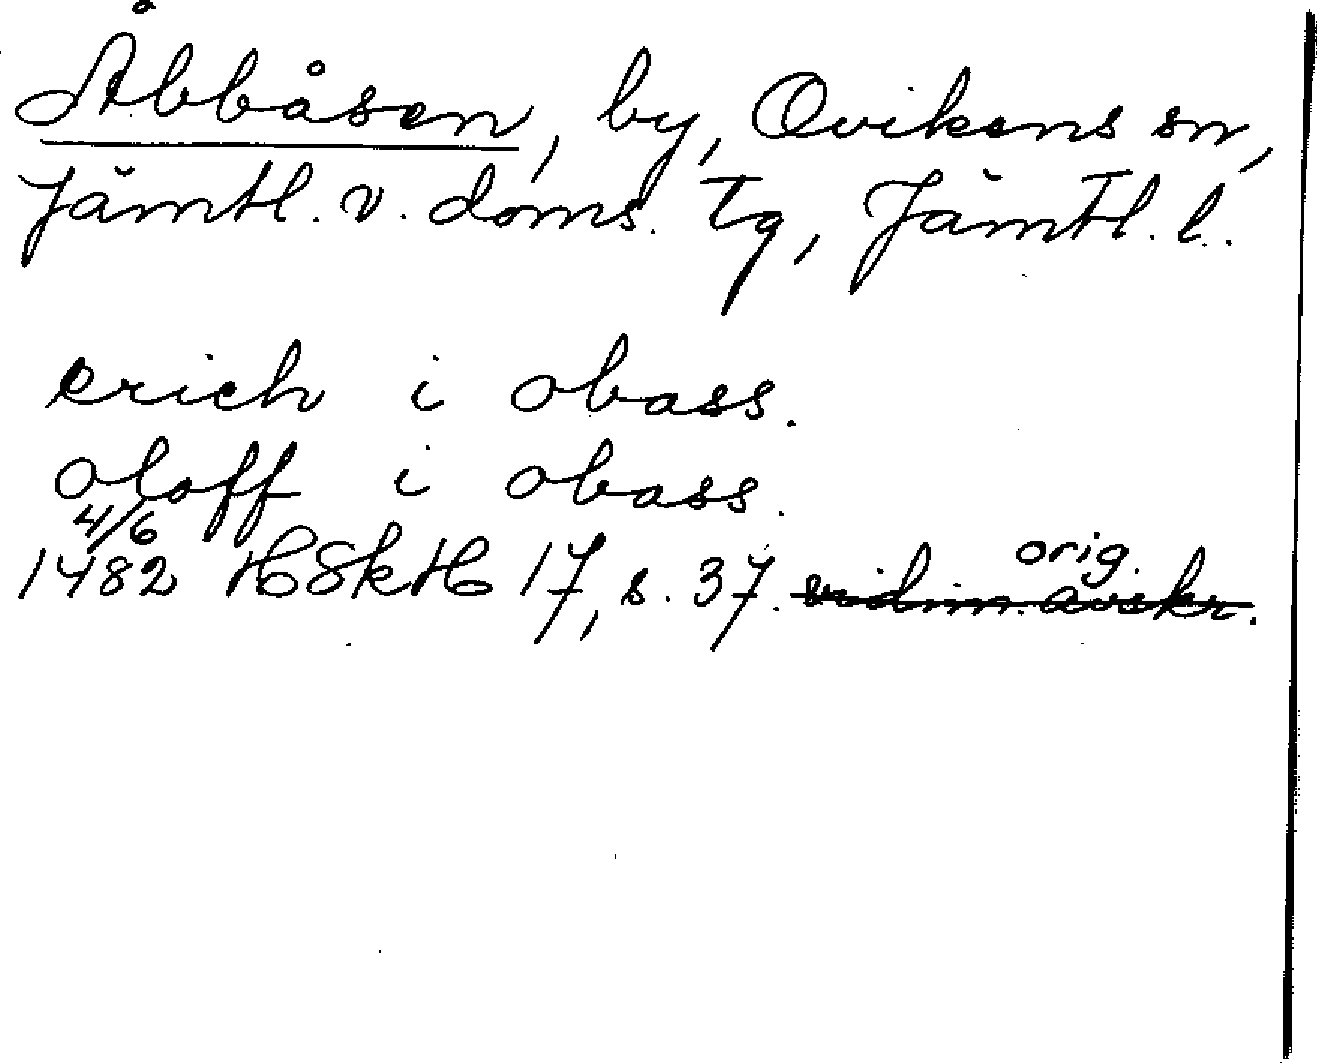 Åbbåsen, by, Ovikens sn,
Jämtl. v. doms. tg, Jämtl. l.
erich i obass.
oloff i obass.
4/6
1482 HSkH 17, s. 37. orig. vidim. avskr.